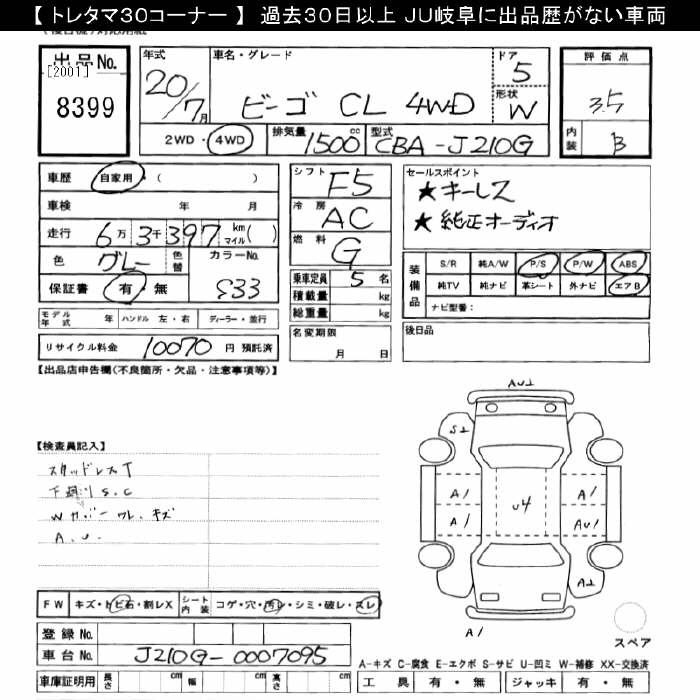 【 トレタマ30コーナー 】 過去30日以上 JU岐阜に出品歴がない車両
出品No.
[2001]
8399
年式
20/7月
車名・グレード
ビーゴ CL 4WD
ドア
5
形状
W
2WD・4WD
排気量
1500cc
型式
CBA-J210G
評価点
3.5
内装
B
車歴
自家用
( )
車検 年 月
走行 6万3千397 km マイル( )
色 グレー 色替
カラーNo.
S33
保証書 有・無
シフト
F5
冷房
AC
燃料
G
乗車定員 5 名
積載量 kg
総重量 kg
セールスポイント
★キーレス
★純正オーディオ
装備品
S/R 純A/W P/S P/W ABS
純TV 純ナビ 革シート 外ナビ エアB
ナビ型番:
モデル年式 年 ハンドル 左・右 ディーラー・並行
リサイクル料金 10070 円 預託済
名変期限
月 日
後日品
【出品店申告欄(不良箇所・欠品・注意事項等)】
【検査員記入】
スタッドレスT
下廻り S.C
Wカバーワレ、キズ
A.U.
AU1
S1
A1
A1
U4
A1
AU1
A2
A1
スペア
FW キズ・トビ石・割レX
シート内装 コゲ・穴・汚レ・シミ・破レ・スレ
登録No.
車台No. J210G-0007095
車庫証明用 長さ cm 幅 cm 高さ cm
A-キズ C-腐食 E-エクボ S-サビ U-凹ミ W-補修 XX-交換済
工具 有・無 ジャッキ 有・無